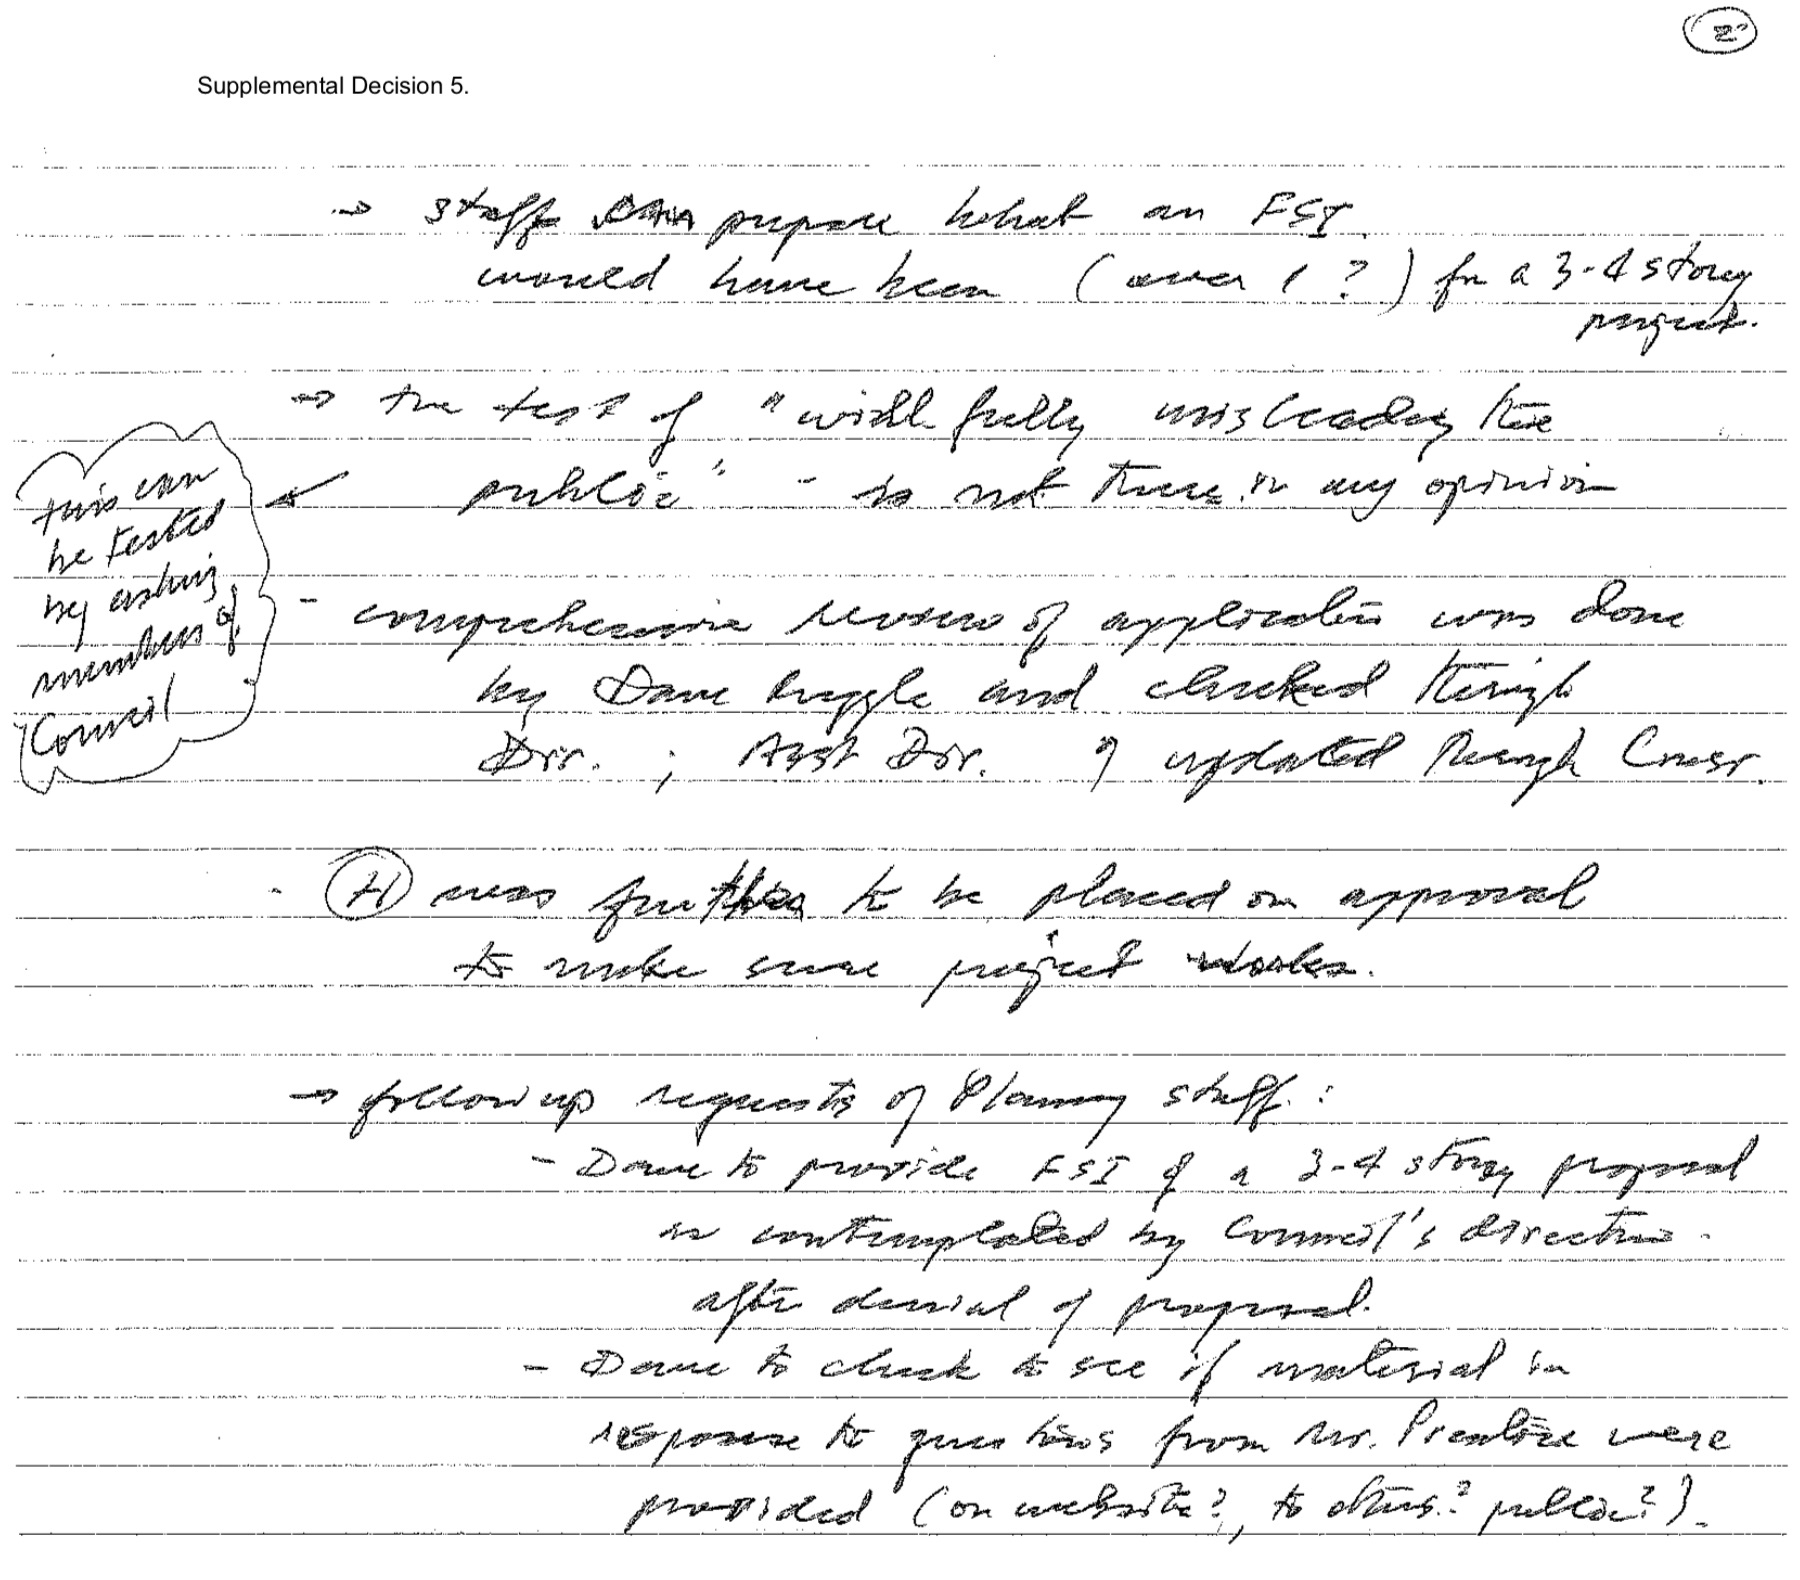 2
Supplemental Decision 5.
→ staff can prepare what an FSI
would have been (over 1?) for a 3-4 storey
project.
→ the test of "willfully misleading the
public" - is not there in my opinion
this can
be tested
by asking
members of
Council
- comprehensive review of application was done
by Dave Ruggle and checked through
Dir. ; Asst Dir. & updated through Consr.
- (H) was further to be placed on approval
to make sure project works.
→ follow up requests of Planning staff :
- Dave to provide FSI of a 3-4 storey proposal
as contemplated by Council's direction
after denial of proposal.
- Dave to check to see if material in
response to questions from Mr. Prentice were
provided (on website?, to others? public?).